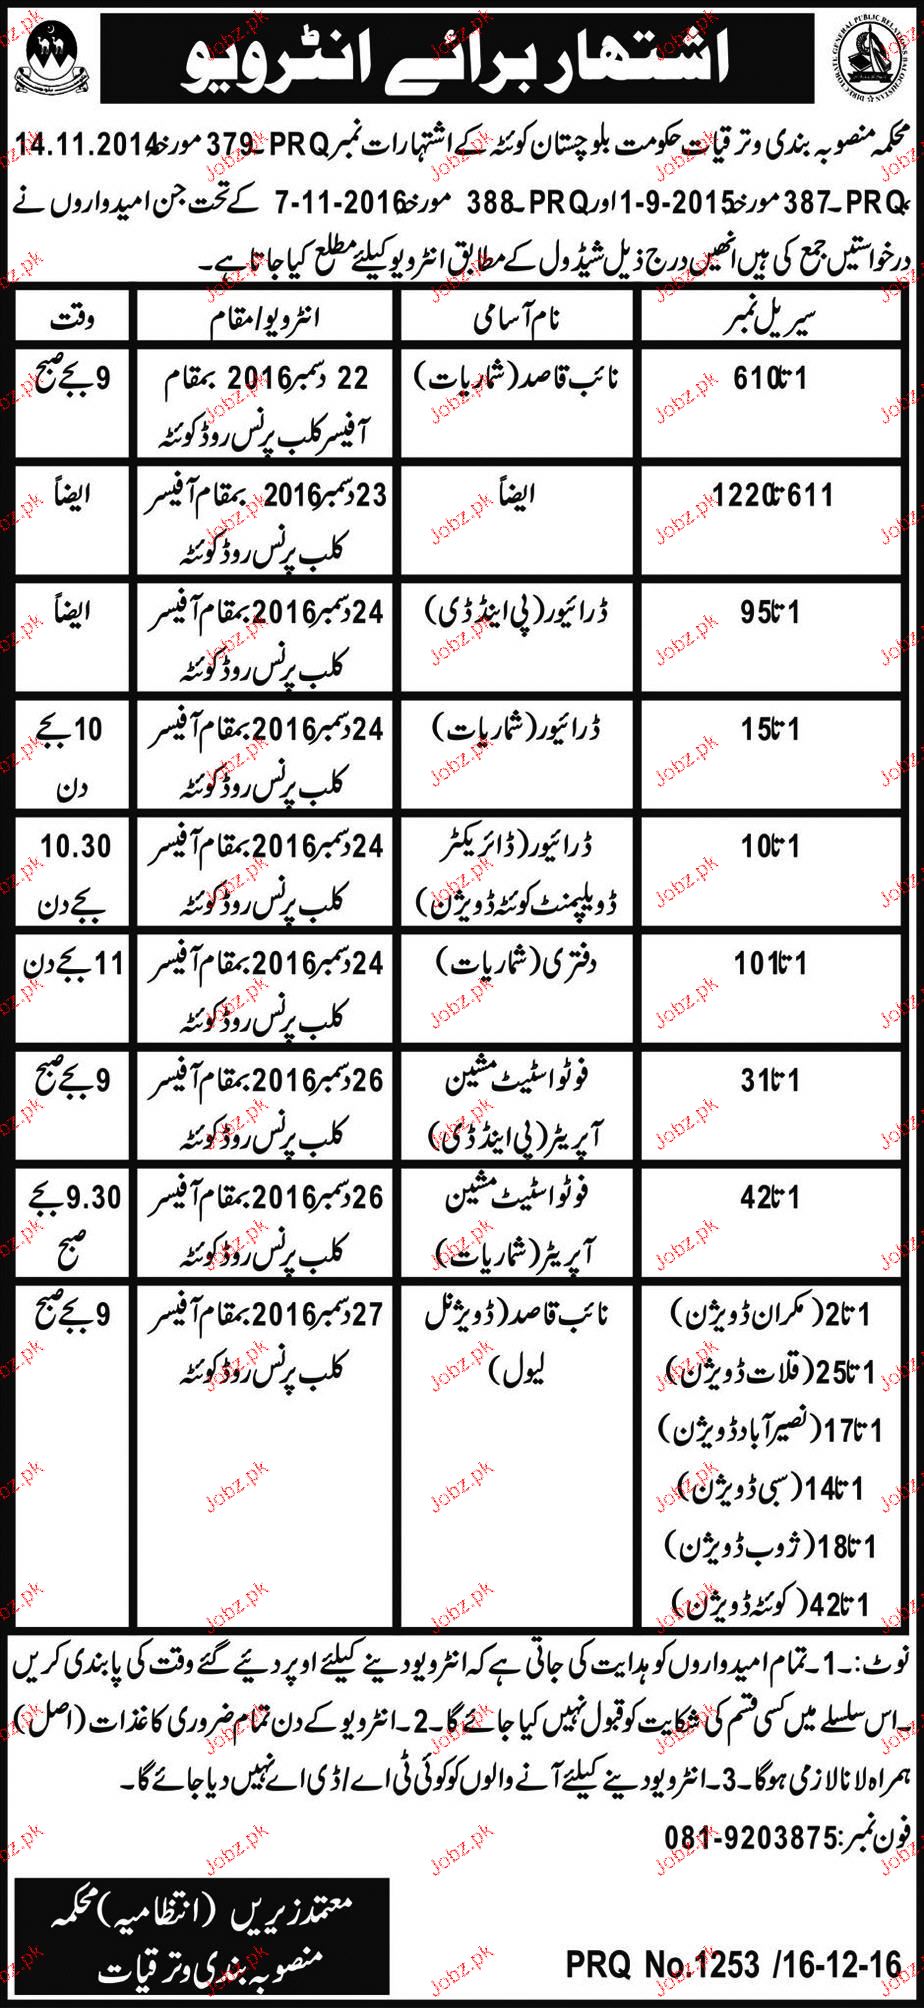 اشتہار برائے انٹرویو
محکمہ منصوبہ بندی وترقیات حکومت بلوچستان کوئٹہ کے اشتہارات نمبر PRQ۔379 مورخہ 14.11.2014
،PRQ۔387 مورخہ 2015-9-1 اور PRQ۔388 مورخہ 2016-11-7 کے تحت جن امیدواروں نے
درخواستیں جمع کی ہیں انھیں درج ذیل شیڈول کے مطابق انٹرویو کیلئے مطلع کیا جاتا ہے۔
سیریل نمبر نام آسامی انٹرویو/مقام وقت
1 تا 610 نائب قاصد (شماریات) 22 دسمبر 2016 بمقام 9 بجے صبح
آفیسر کلب پرنس روڈ کوئٹہ
611 تا 1220 ایضاً 23 دسمبر 2016 بمقام آفیسر ایضاً
کلب پرنس روڈ کوئٹہ
1 تا 95 ڈرائیور (پی اینڈ ڈی) 24 دسمبر 2016 بمقام آفیسر ایضاً
کلب پرنس روڈ کوئٹہ
1 تا 15 ڈرائیور (شماریات) 24 دسمبر 2016 بمقام آفیسر 10 بجے
کلب پرنس روڈ کوئٹہ دن
1 تا 10 ڈرائیور (ڈائریکٹر 24 دسمبر 2016 بمقام آفیسر 10.30
ڈویلپمنٹ کوئٹہ ڈویژن) کلب پرنس روڈ کوئٹہ بجے دن
1 تا 101 دفتری (شماریات) 24 دسمبر 2016 بمقام آفیسر 11 بجے دن
کلب پرنس روڈ کوئٹہ
1 تا 31 فوٹو اسٹیٹ مشین 26 دسمبر 2016 بمقام آفیسر 9 بجے صبح
آپریٹر (پی اینڈ ڈی) کلب پرنس روڈ کوئٹہ
1 تا 42 فوٹو اسٹیٹ مشین 26 دسمبر 2016 بمقام آفیسر 9.30 بجے
آپریٹر (شماریات) کلب پرنس روڈ کوئٹہ صبح
1 تا 2 (مکران ڈویژن) نائب قاصد (ڈویژنل 27 دسمبر 2016 بمقام آفیسر 9 بجے صبح
1 تا 25 (قلات ڈویژن) لیول) کلب پرنس روڈ کوئٹہ
1 تا 17 (نصیر آباد ڈویژن)
1 تا 14 (سبی ڈویژن)
1 تا 18 (ژوب ڈویژن)
1 تا 42 (کوئٹہ ڈویژن)
نوٹ:۔ 1۔ تمام امیدواروں کو ہدایت کی جاتی ہے کہ انٹرویو دینے کیلئے اوپر دیئے گئے وقت کی پابندی کریں
۔ اس سلسلے میں کسی قسم کی شکایت کو قبول نہیں کیا جائے گا۔ 2۔ انٹرویو کے دن تمام ضروری کاغذات (اصل)
ہمراہ لانا لازمی ہوگا۔ 3۔ انٹرویو دینے کیلئے آنے والوں کو کوئی ٹی اے/ڈی اے نہیں دیا جائے گا۔
فون نمبر: 081-9203875
معتمد زیریں (انتظامیہ) محکمہ
منصوبہ بندی وترقیات
PRQ No.1253 /16-12-16